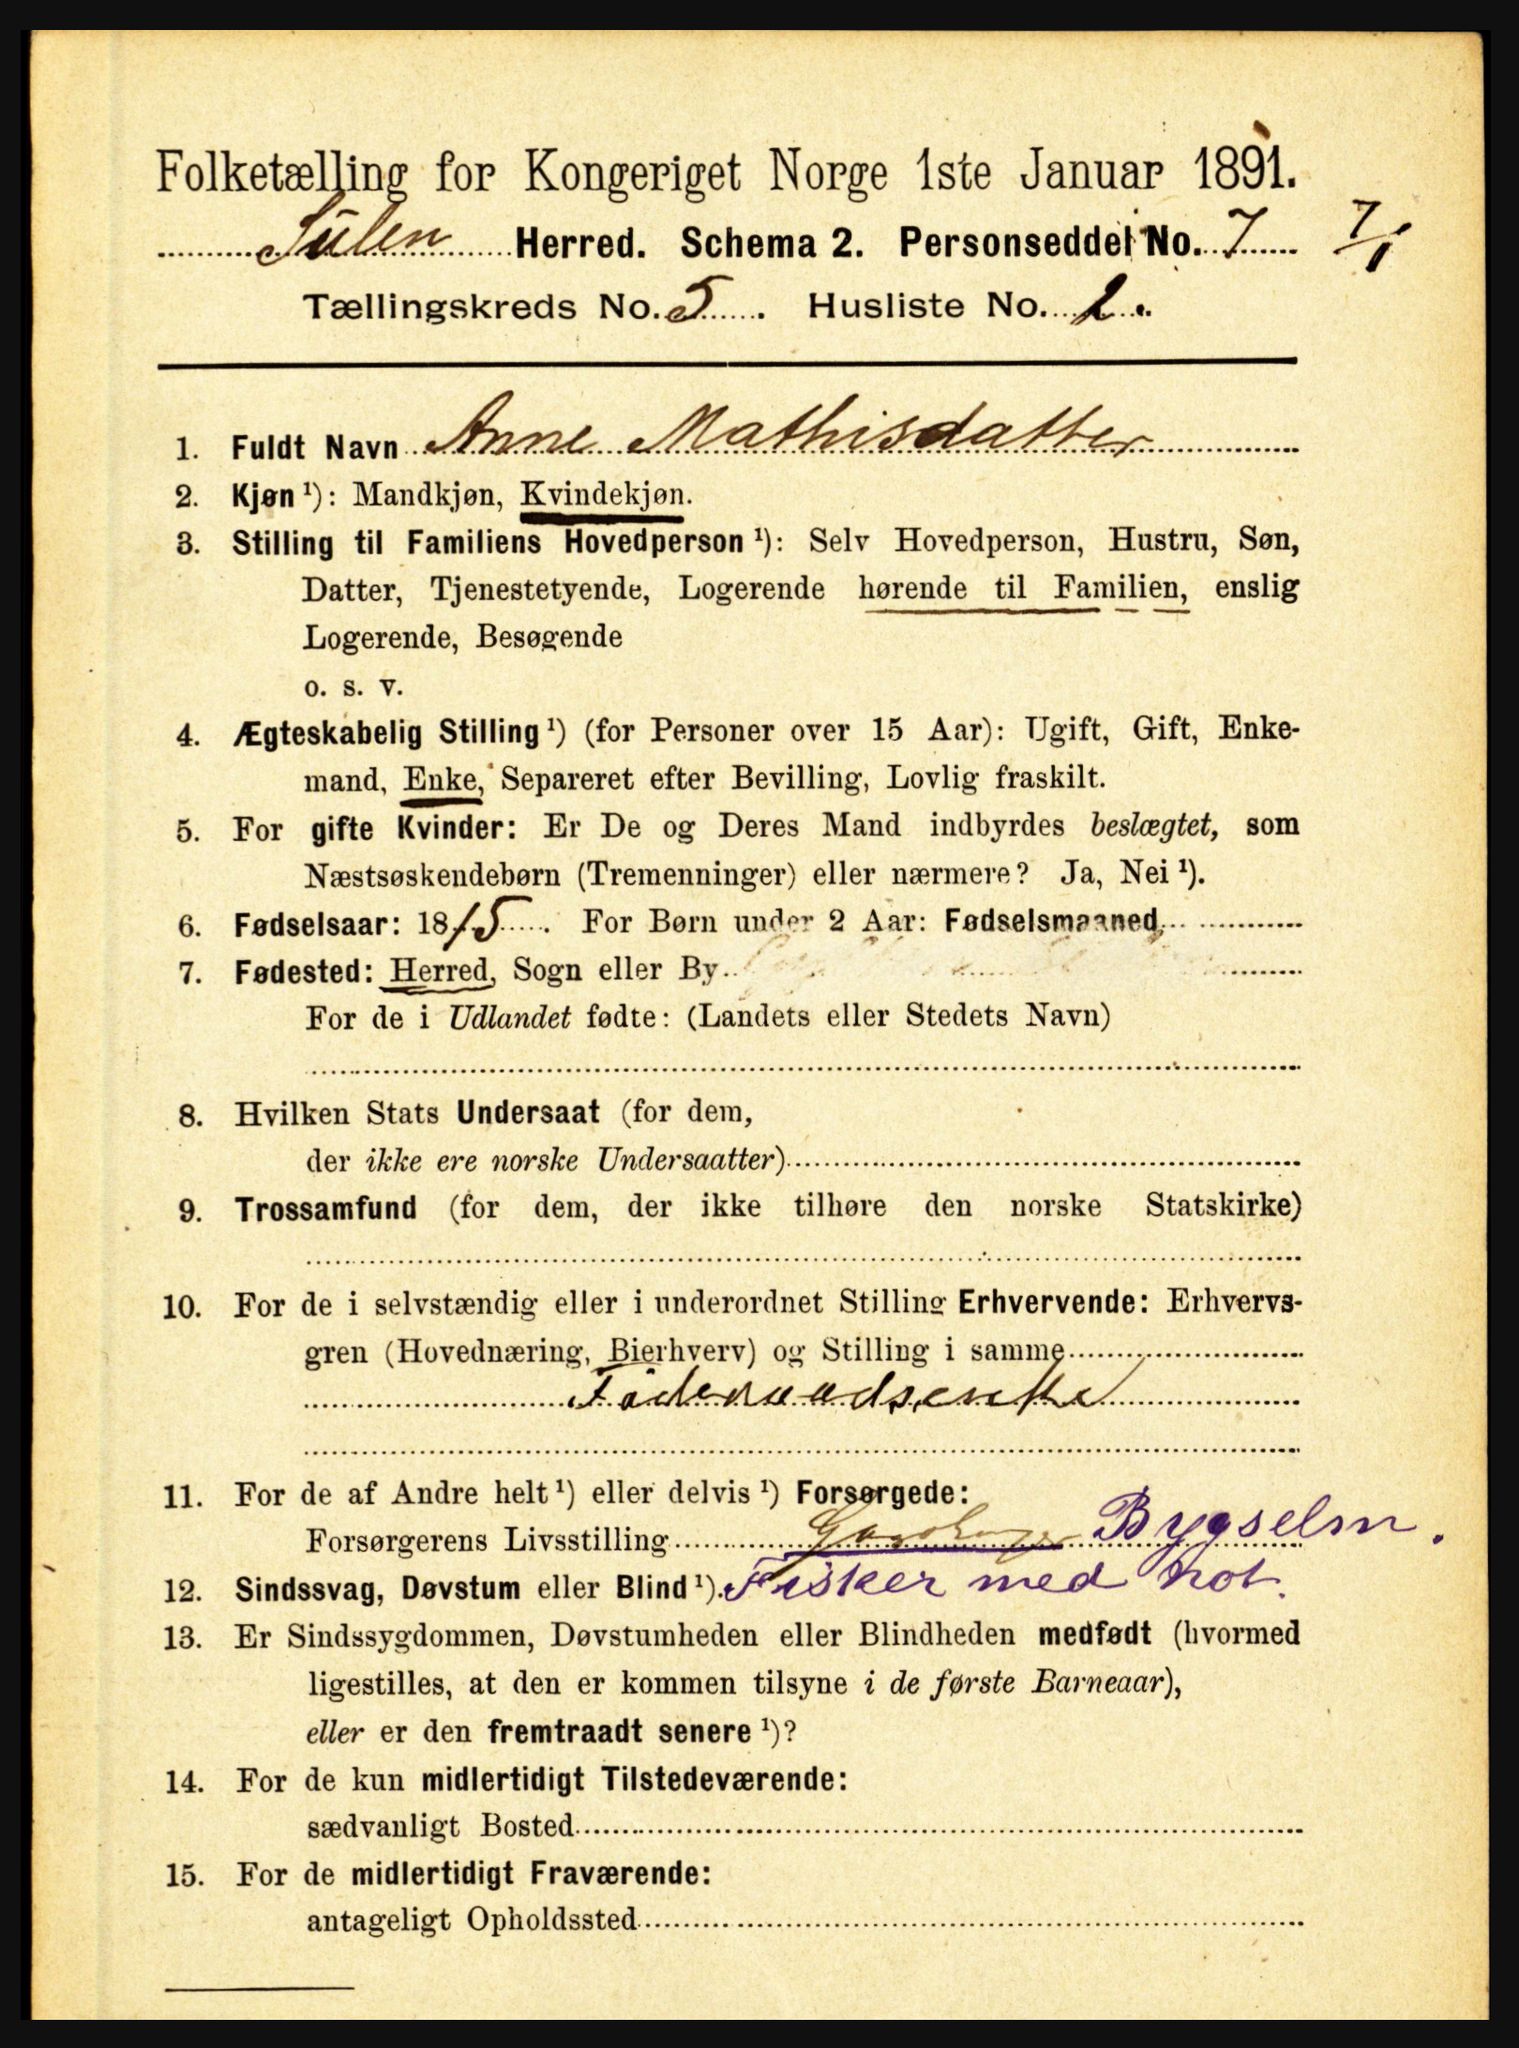 Folketælling for Kongeriget Norge 1ste Januar 1891.
Sulen Herred. Schema 2. Personseddel No. 7 7/1
Tællingskreds No. 5. Husliste No. 1.
1. Fuldt Navn Anne Mathisdatter
2. Kjøn ¹): Mandkjøn, Kvindekjøn.
3. Stilling til Familiens Hovedperson ¹): Selv Hovedperson, Hustru, Søn,
Datter, Tjenestetyende, Logerende hørende til Familien, enslig
Logerende, Besøgende
o. s. v.
4. Ægteskabelig Stilling ¹) (for Personer over 15 Aar): Ugift, Gift, Enke-
mand, Enke, Separeret efter Bevilling, Lovlig fraskilt.
5. For gifte Kvinder: Er De og Deres Mand indbyrdes beslægtet, som
Næstsøskendebørn (Tremenninger) eller nærmere? Ja, Nei ¹).
6. Fødselsaar: 1815. For Børn under 2 Aar: Fødselsmaaned
7. Fødested: Herred, Sogn eller By
For de i Udlandet fødte: (Landets eller Stedets Navn)
8. Hvilken Stats Undersaat (for dem,
der ikke ere norske Undersaatter)
9. Trossamfund (for dem, der ikke tilhøre den norske Statskirke)
10. For de i selvstændig eller i underordnet Stilling Erhvervende: Erhvervs-
gren (Hovednæring, Bierhverv) og Stilling i samme
Føderaadsenke
11. For de af Andre helt ¹) eller delvis ¹) Forsørgede:
Forsørgerens Livsstilling Bygselm.
12. Sindssvag, Døvstum eller Blind ¹). Fisker med not.
13. Er Sindssygdommen, Døvstumheden eller Blindheden medfødt (hvormed
ligestilles, at den er kommen tilsyne i de første Barneaar),
eller er den fremtraadt senere ¹)?
14. For de kun midlertidigt Tilstedeværende:
sædvanligt Bosted
15. For de midlertidigt Fraværende:
antageligt Opholdssted